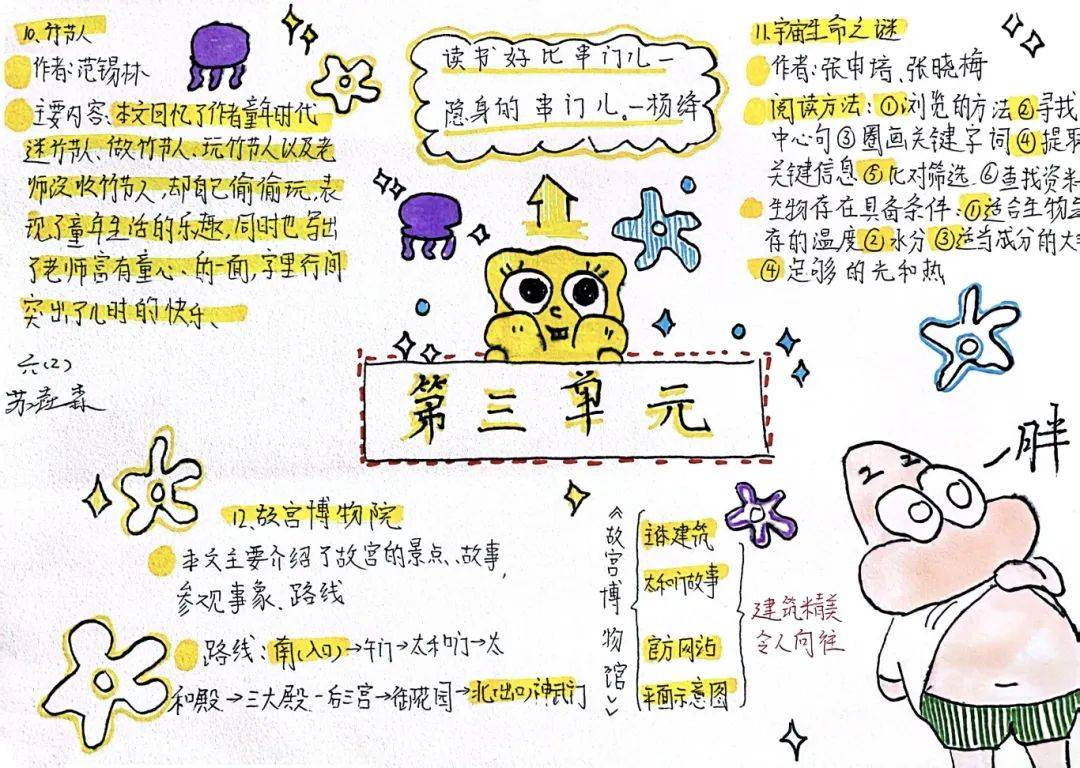 10.竹节人
作者:范锡林
主要内容:本文回忆了作者童年时代
迷竹节人、做竹节人、玩竹节人以及老
师没收竹节人,却自己偷偷玩,表
现了童年生活的乐趣,同时也写出
了老师富有童心、的一面,字里行间
突出了儿时的快乐、
六(2)
读书好比串门儿一
隐身的串门儿。一杨绛
11.宇宙生命之谜
作者:张申培、张晓梅
阅读方法:①浏览的方法②寻找
中心句③圈画关键字词④提取
关键信息⑤比对筛选⑥查找资料
生物存在具备条件:①适合生物生
存的温度②水分③适当成分的大
④足够的光和热
第三单元
胖
12.故宫博物院
本文主要介绍了故宫的景点、故事,
参观事象、路线
路线:南(入口)→午门→太和门→太
和殿→三大殿→后三宫→御花园→北(出口)神武门
《故宫博物馆》
主体建筑
太和门故事
官方网站
平面示意图
建筑精美
令人向往